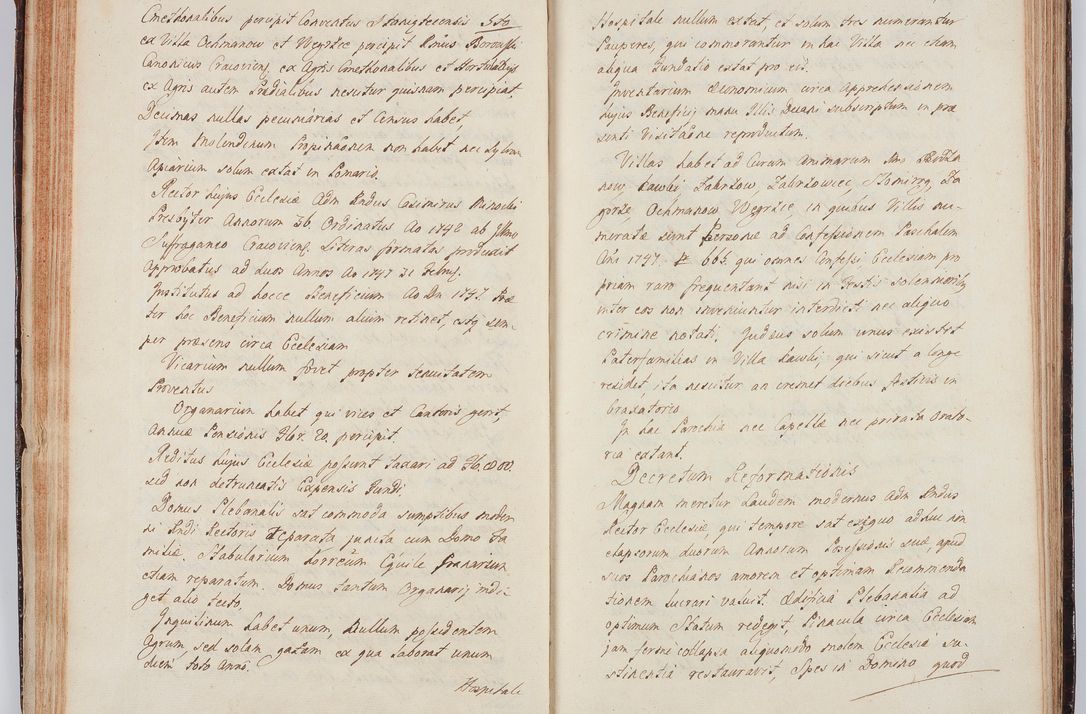 Cmethonalibus percipit Conventus Staniątecensis
ex Villa Ochmanow et Węgrzce percipit Rndus Borowski
Canonicus Cracovien; ex Agris Cmethonalibus et Hortulanijs
ex Agris autem Prædialibus nescitur quisnam percipiat.
Decimas nullas pecuniarias et Census habet,
Item Molendinum Propinationem non habet nec Sylvam
Apiarium solum extat in Pomario.
Rector hujus Ecclesiæ Adm Rndus Casimirus
Presbyter Annorum 36. Ordinatus Ao 1742 ab Illmo
Suffraganeo Cracovien; Literas formatas produxit
Approbatus ad duos Annos Ao 1747 21 Febrij.
Institutus ad hocce Beneficium Ao Dni 1747. Præ
ter hoc Beneficium nullum alium retinet, estq sem-
per præsens circa Ecclesiam
Vicarium nullum fovet propter tenuitatem
Proventus
Organarium habet qui vices et Cantoris gerit,
Annuæ Pensionis Flor. 20. percipit.
Reditus hujus Ecclesiæ possunt taxari ad
sed non detruncatis Expensis Fundi.
Domus Plebanalis sat commoda sumptibus moder
ni Rndi Rectoris reparata juncta cum Domo fa
miliæ. Stabularium horreum Equile granarium
etiam reparatum. Domus tantum Organarij indi-
get alio tecto.
Inquilinum habet unum, nullum possidentem
Agrum, sed solam gazam ex qua laborat unum
diem toto Anno.
Hospitale
Hospitale nullum extat, et solum tres numerantur
Pauperes, qui commorantur in hac Villa nec etiam
aliqua Fundatio extat pro eis.
Inventarium Œconomicum circa apprehensionem
hujus Beneficij manu Illis Decani subscriptum in præ
senti Visitatne reproductum.
Villas habet ad Curam Animarum
now, Zabrzow, Zabrzowiec, Słomirog, Za
gorze, Ochmanow Węgrzce, in quibus Villis nu-
meratæ sunt Personæ ad Confessionem Paschalem
Ano 1747. 605. qui omnes Confessi, Ecclesiam pro
priam raro frequentant nisi in Festis solennioribus,
inter eos non inveniuntur interdicti nec aliquo
crimine notati. Judæus solum unus existit
Paterfamilias in Villa qui sicut a longe
residet, ita nescitur an cremet diebus festivis in
braxatorio.
In hac Parochia nec Capellæ nec privata Orato-
ria extant.
Decretum Reformationis
Magnam meretur Laudem modernus Adm Rndus
Rector Ecclesiæ, qui tempore sat exiguo adhuc non
elapsorum duorum Annorum Possessionis suæ, apud
suos Parochianos amorem et optimam Recommenda
tionem lucrari valuit. Ædificia Plebanalia ad
optimum Statum redegit, Pinacula circa Ecclesiam
jam ferme collapsa aliquomodo molem Ecclesiæ su
stinentia restauravit, Spes in Domino quod